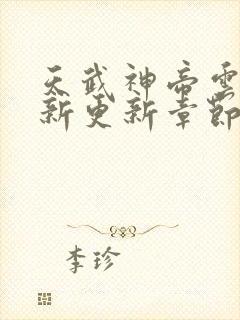 天武神帝雲
新更新章節
李珍